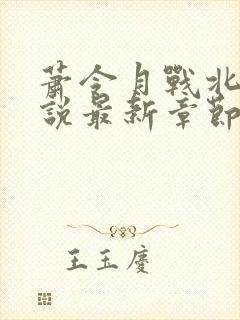 蕭令月戰北
說最新章節
王玉慶